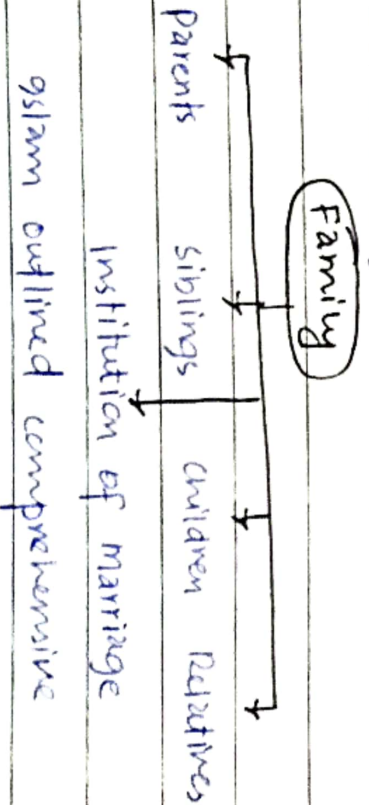 Family
Parents siblings children Relatives
Institution of marriage
gslam outlined comprehensive